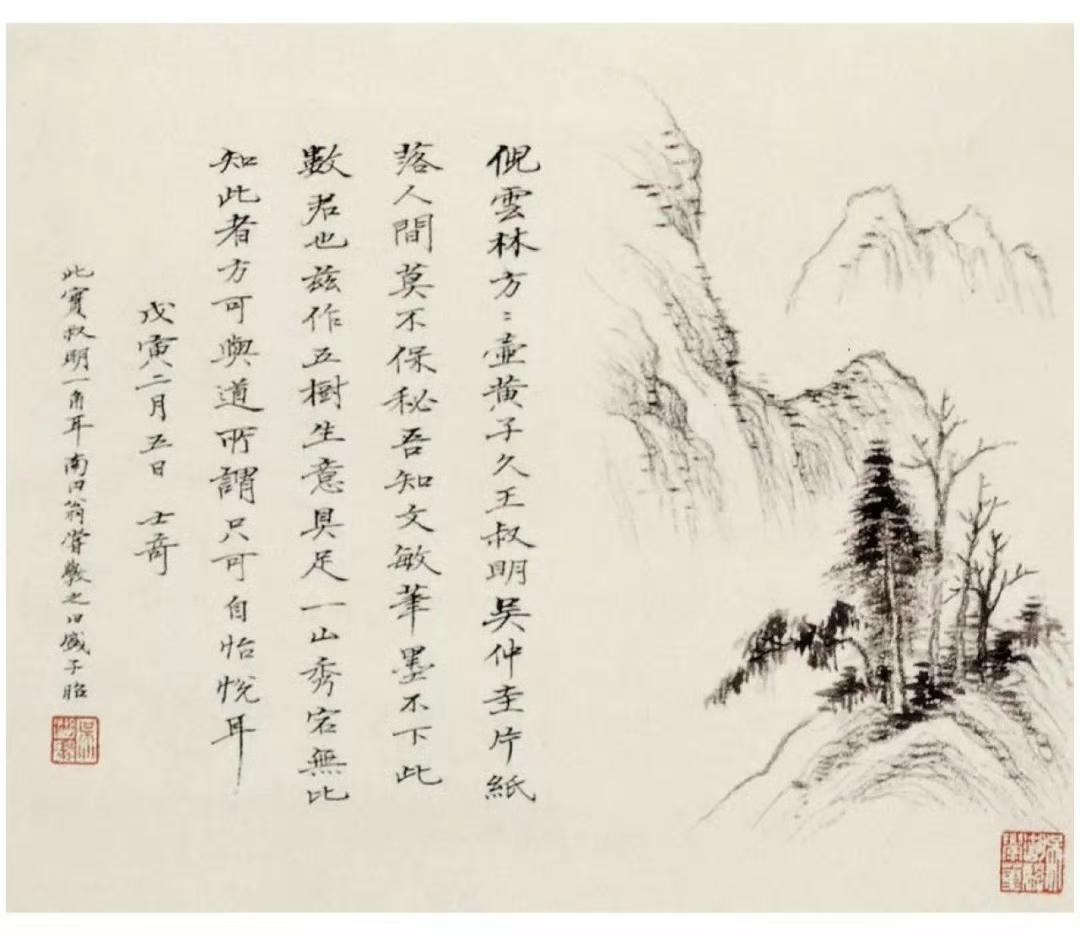 倪雲林方:壺黃子久王叔明吳仲圭片紙
落人間莫不保秘吾知文敏筆墨不下此
數君也茲作五樹生意具足一山秀宕無比
知此者方可與道所謂只可自怡悅耳
戊寅二月五日 士奇
此寶叔明一角耳南田翁嘗藏之